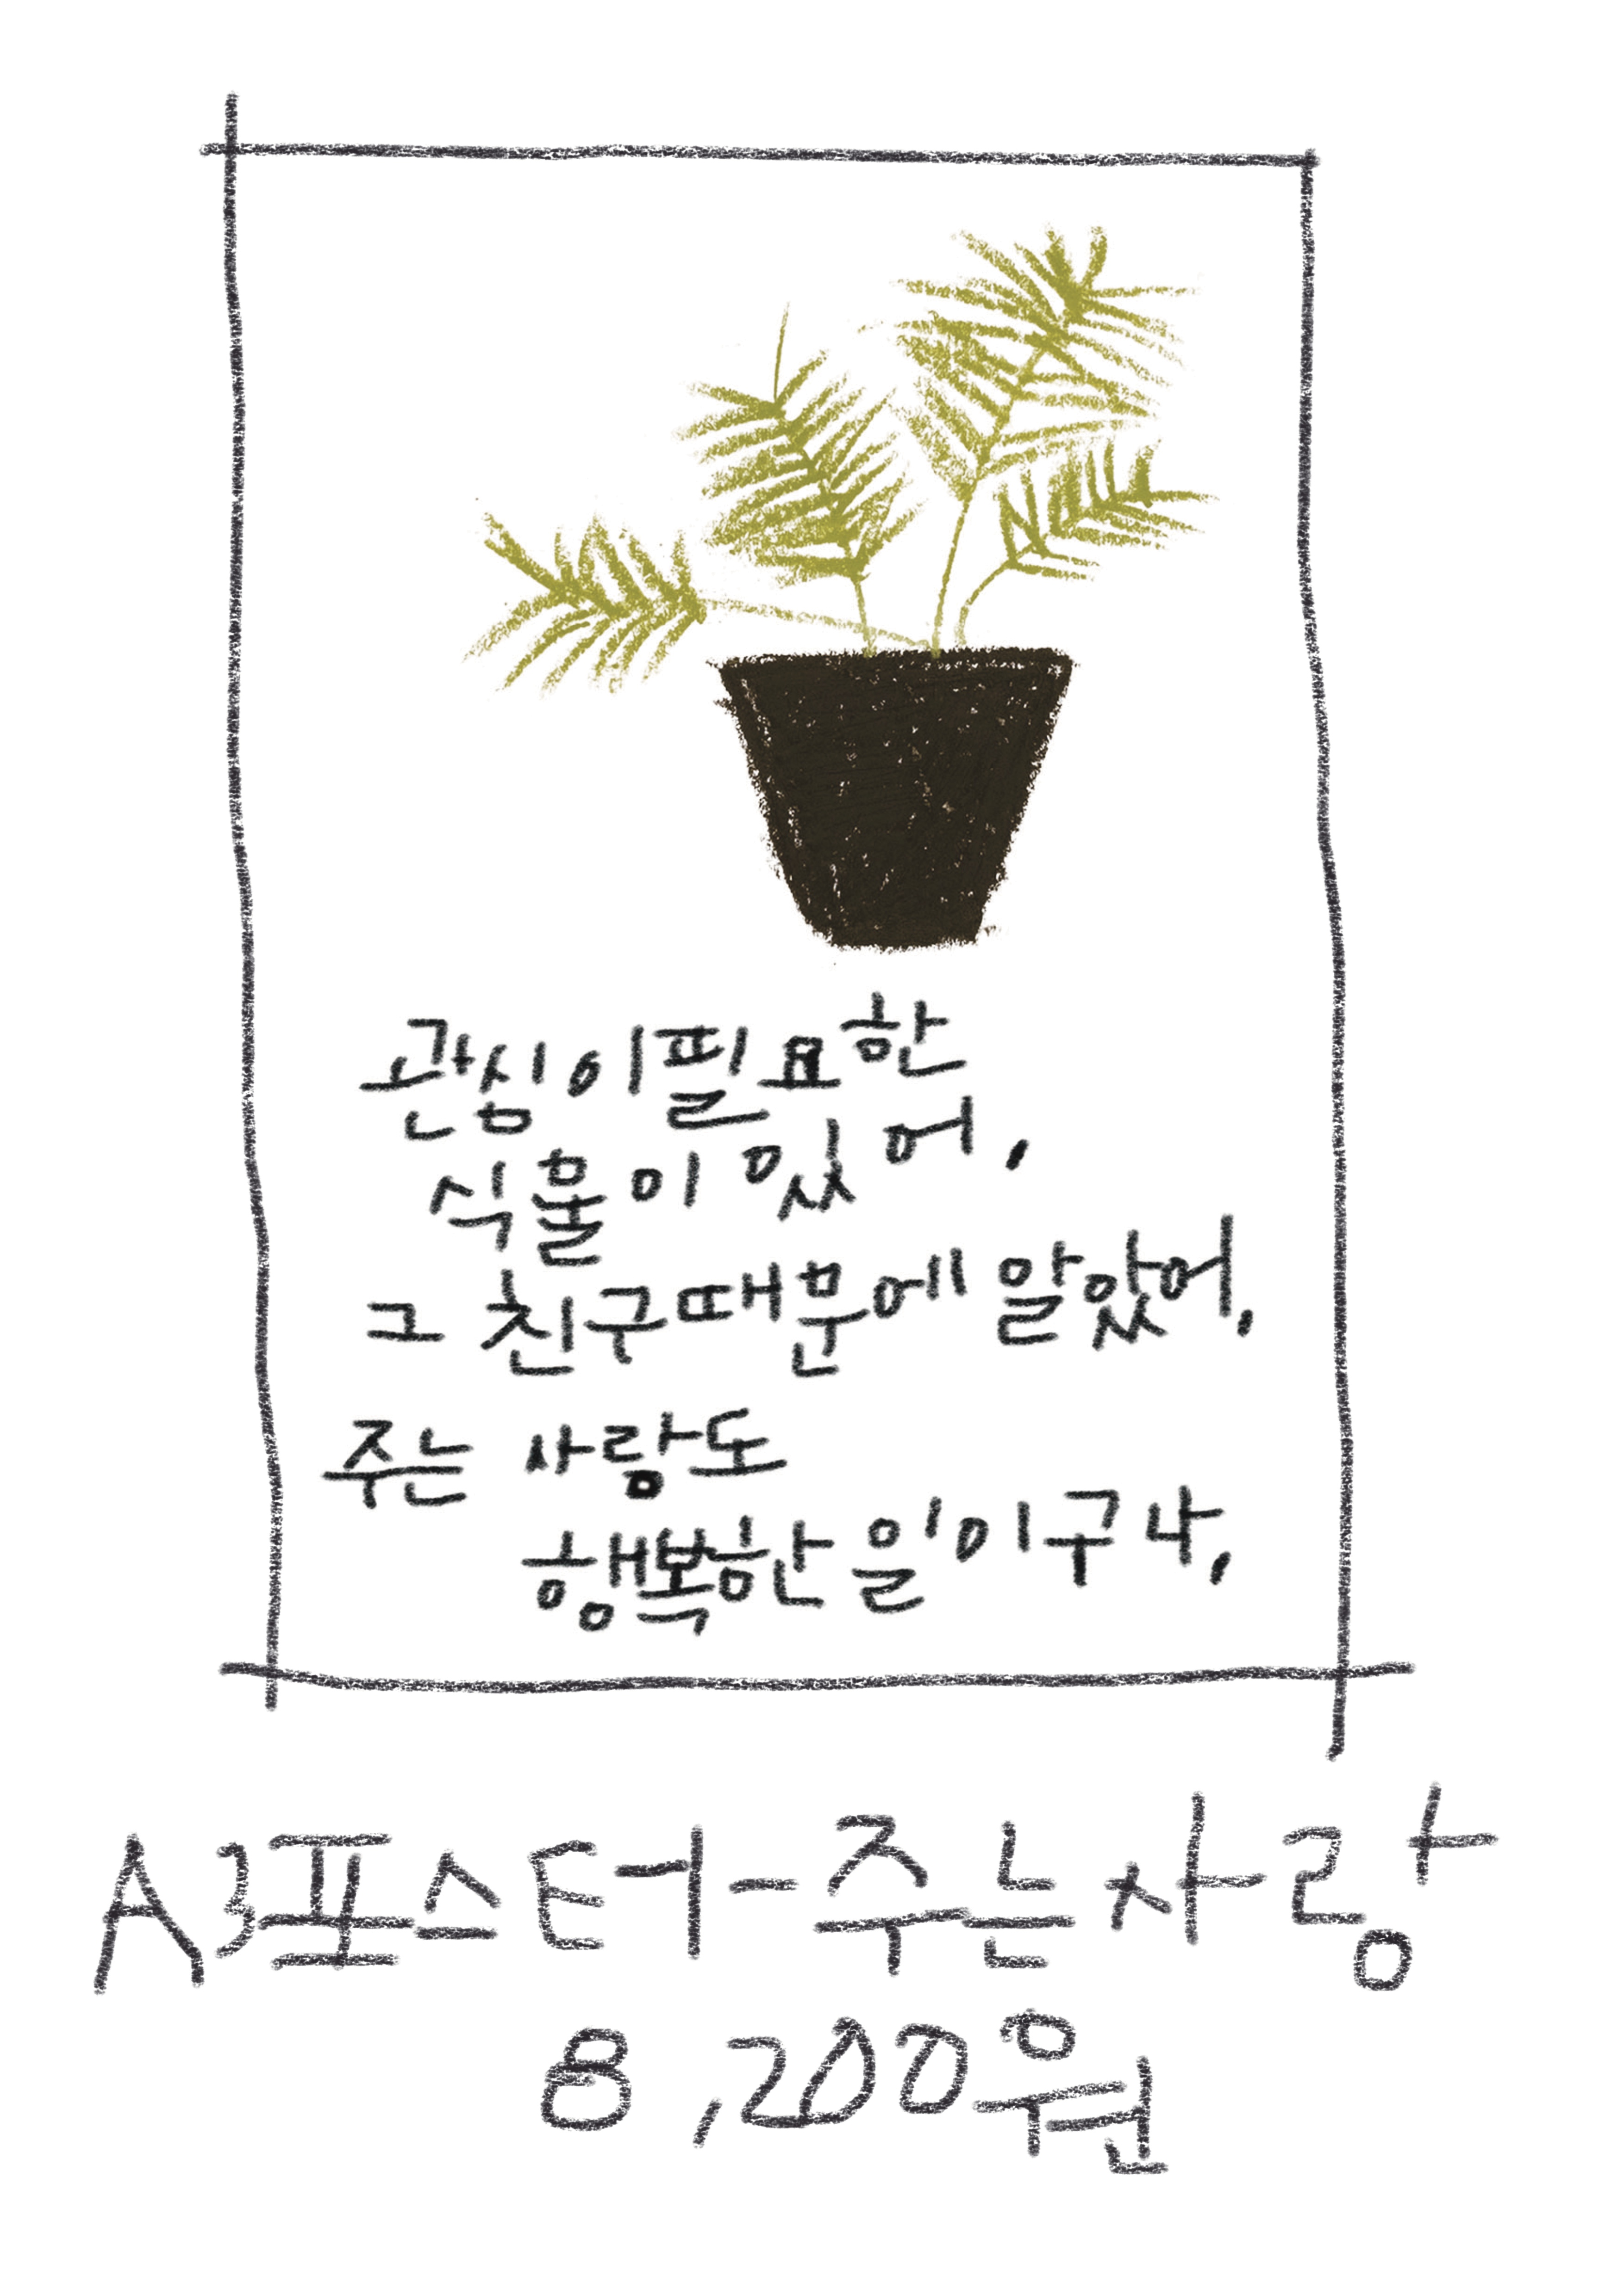 관심이 필요한
식물이 있어,
그 친구때문에 알았어,
주는 사람도
행복한 일이구나,
A3포스터-주는사랑
8,200원